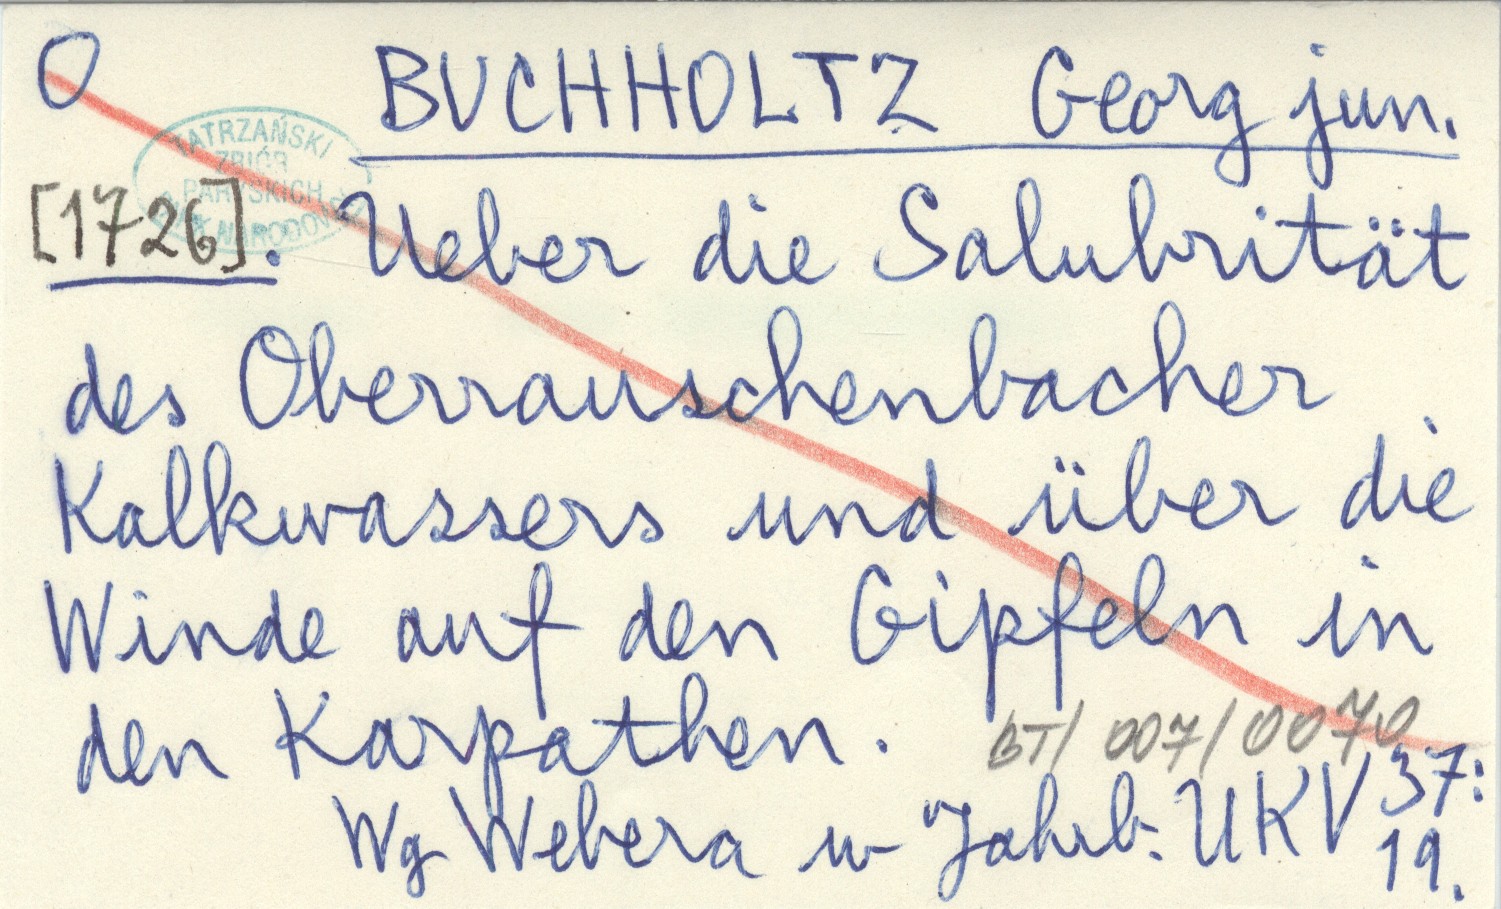 O BUCHHOLTZ Georg jun.
TATRZAŃSKI
ZBIÓR
PARYSKICH
NARODOWY
[1726]. Ueber die Salubrität
des Oberrauschenbacher
Kalkwassers und über die
Winde auf den Gipfeln in
den Karpathen.
BT/007/0070
Wg Webera w Jahrb. UKV 37:
19.